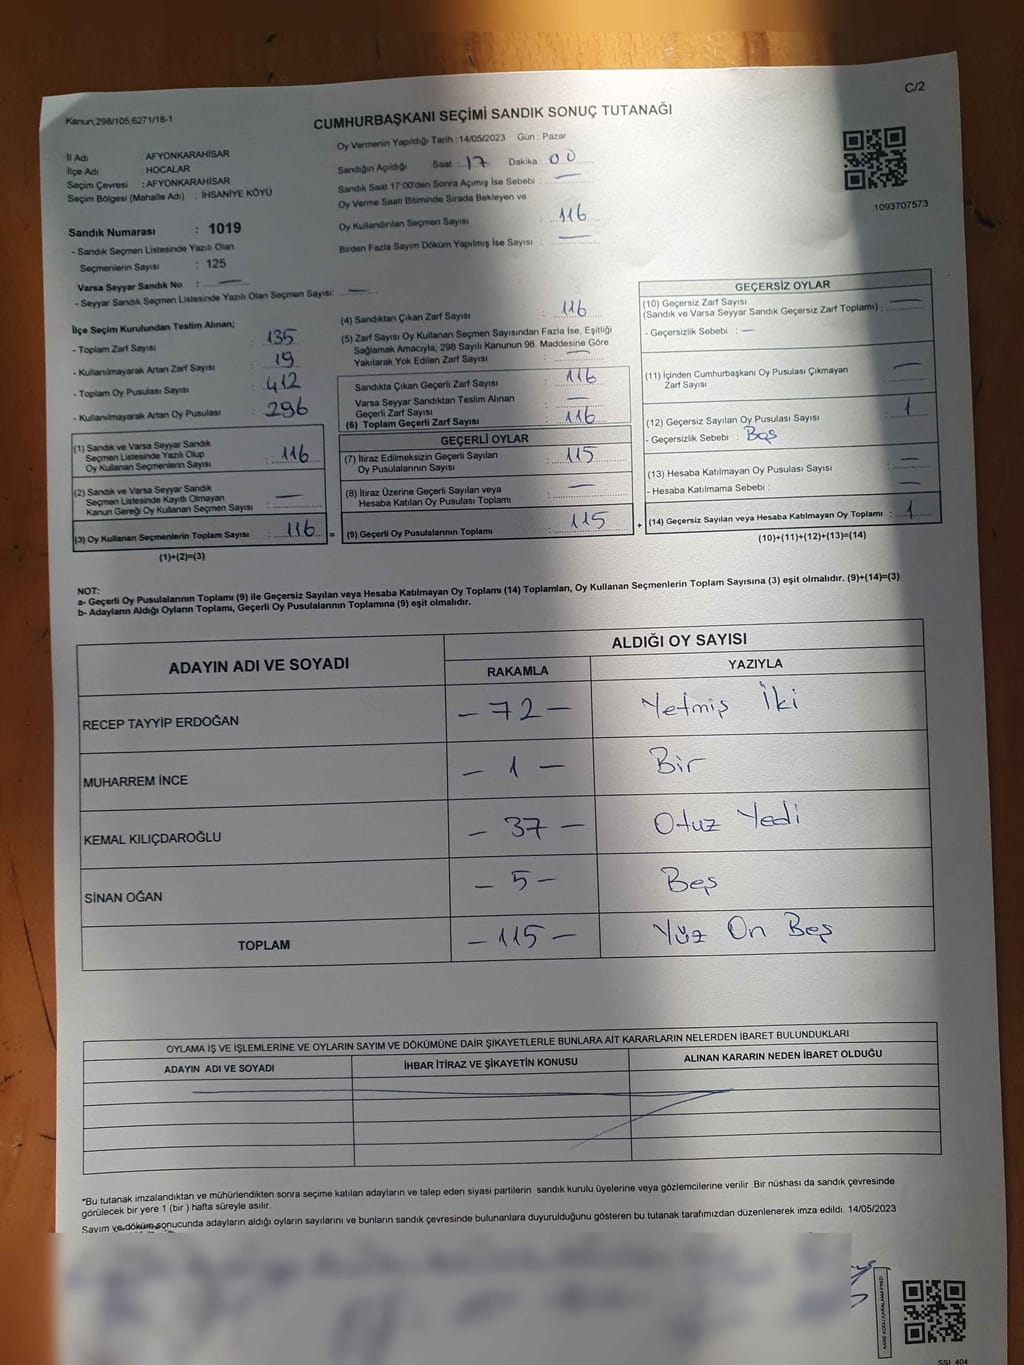 C/2
Kanun;298/105,6271/18-1
CUMHURBAŞKANI SEÇİMİ SANDIK SONUÇ TUTANAĞI
Oy Vermenin Yapıldığı Tarih : 14/05/2023 Gün : Pazar
İl Adı : AFYONKARAHİSAR
İlçe Adı : HOCALAR
Seçim Çevresi : AFYONKARAHİSAR
Seçim Bölgesi (Mahalle Adı) : İHSANİYE KÖYÜ
Sandık Numarası : 1019
- Sandık Seçmen Listesinde Yazılı Olan
Seçmenlerin Sayısı : 125
Varsa Seyyar Sandık No : —
- Seyyar Sandık Seçmen Listesinde Yazılı Olan Seçmen Sayısı: —
Sandığın Açıldığı Saat : 17 Dakika : 00
Sandık Saat 17:00'den Sonra Açımış İse Sebebi : —
Oy Verme Saati Bitiminde Sırada Bekleyen ve
Oy Kullandırılan Seçmen Sayısı : 116
Birden Fazla Sayım Döküm Yapılmış İse Sayısı : —
1093707573
İlçe Seçim Kurulundan Teslim Alınan;
- Toplam Zarf Sayısı : 135
- Kullanılmayarak Artan Zarf Sayısı : 19
- Toplam Oy Pusulası Sayısı : 412
- Kullanılmayarak Artan Oy Pusulası : 296
(1) Sandık ve Varsa Seyyar Sandık
Seçmen Listesinde Yazılı Olup
Oy Kullanan Seçmenlerin Sayısı : 116
(2) Sandık ve Varsa Seyyar Sandık
Seçmen Listesinde Kayıtlı Olmayan
Kanun Gereği Oy Kullanan Seçmen Sayısı : —
(3) Oy Kullanan Seçmenlerin Toplam Sayısı : 116 =
(1)+(2)=(3)
(4) Sandıktan Çıkan Zarf Sayısı : 116
(5) Zarf Sayısı Oy Kullanan Seçmen Sayısından Fazla İse, Eşitliği
Sağlamak Amacıyla, 298 Sayılı Kanunun 98. Maddesine Göre
Yakılarak Yok Edilen Zarf Sayısı : —
Sandıkta Çıkan Geçerli Zarf Sayısı : 116
Varsa Seyyar Sandıktan Teslim Alınan
Geçerli Zarf Sayısı : —
(6) Toplam Geçerli Zarf Sayısı : 116
GEÇERLİ OYLAR
(7) İtiraz Edilmeksizin Geçerli Sayılan
Oy Pusulalarının Sayısı : 115
(8) İtiraz Üzerine Geçerli Sayılan veya
Hesaba Katılan Oy Pusulası Toplamı : —
(9) Geçerli Oy Pusulalarının Toplamı : 115 +
GEÇERSİZ OYLAR
(10) Geçersiz Zarf Sayısı
(Sandık ve Varsa Seyyar Sandık Geçersiz Zarf Toplamı) : —
- Geçersizlik Sebebi : —
(11) İçinden Cumhurbaşkanı Oy Pusulası Çıkmayan
Zarf Sayısı : —
(12) Geçersiz Sayılan Oy Pusulası Sayısı : 1
- Geçersizlik Sebebi : Boş
(13) Hesaba Katılmayan Oy Pusulası Sayısı : —
- Hesaba Katılmama Sebebi : —
(14) Geçersiz Sayılan veya Hesaba Katılmayan Oy Toplamı : 1
(10)+(11)+(12)+(13)=(14)
NOT:
a- Geçerli Oy Pusulalarının Toplamı (9) ile Geçersiz Sayılan veya Hesaba Katılmayan Oy Toplamı (14) Toplamları, Oy Kullanan Seçmenlerin Toplam Sayısına (3) eşit olmalıdır. (9)+(14)=(3)
b- Adayların Aldığı Oyların Toplamı, Geçerli Oy Pusulalarının Toplamına (9) eşit olmalıdır.
ADAYIN ADI VE SOYADI
ALDIĞI OY SAYISI
RAKAMLA YAZIYLA
RECEP TAYYİP ERDOĞAN – 72 – Yetmiş İki
MUHARREM İNCE – 1 – Bir
KEMAL KILIÇDAROĞLU – 37 – Otuz Yedi
SİNAN OĞAN – 5 – Beş
TOPLAM – 115 – Yüz On Beş
OYLAMA İŞ VE İŞLEMLERİNE VE OYLARIN SAYIM VE DÖKÜMÜNE DAİR ŞİKAYETLERLE BUNLARA AİT KARARLARIN NELERDEN İBARET BULUNDUKLARI
ADAYIN ADI VE SOYADI İHBAR İTİRAZ VE ŞİKAYETİN KONUSU ALINAN KARARIN NEDEN İBARET OLDUĞU
*Bu tutanak imzalandıktan ve mühürlendikten sonra seçime katılan adayların ve talep eden siyasi partilerin sandık kurulu üyelerine veya gözlemcilerine verilir .Bir nüshası da sandık çevresinde
görülecek bir yere 1 (bir ) hafta süreyle asılır.
Sayım ve döküm sonucunda adayların aldığı oyların sayılarını ve bunların sandık çevresinde bulunanlara duyurulduğunu gösteren bu tutanak tarafımızdan düzenlenerek imza edildi. 14/05/2023
KARE KODU KARALAMAYINIZ!
SSI_404